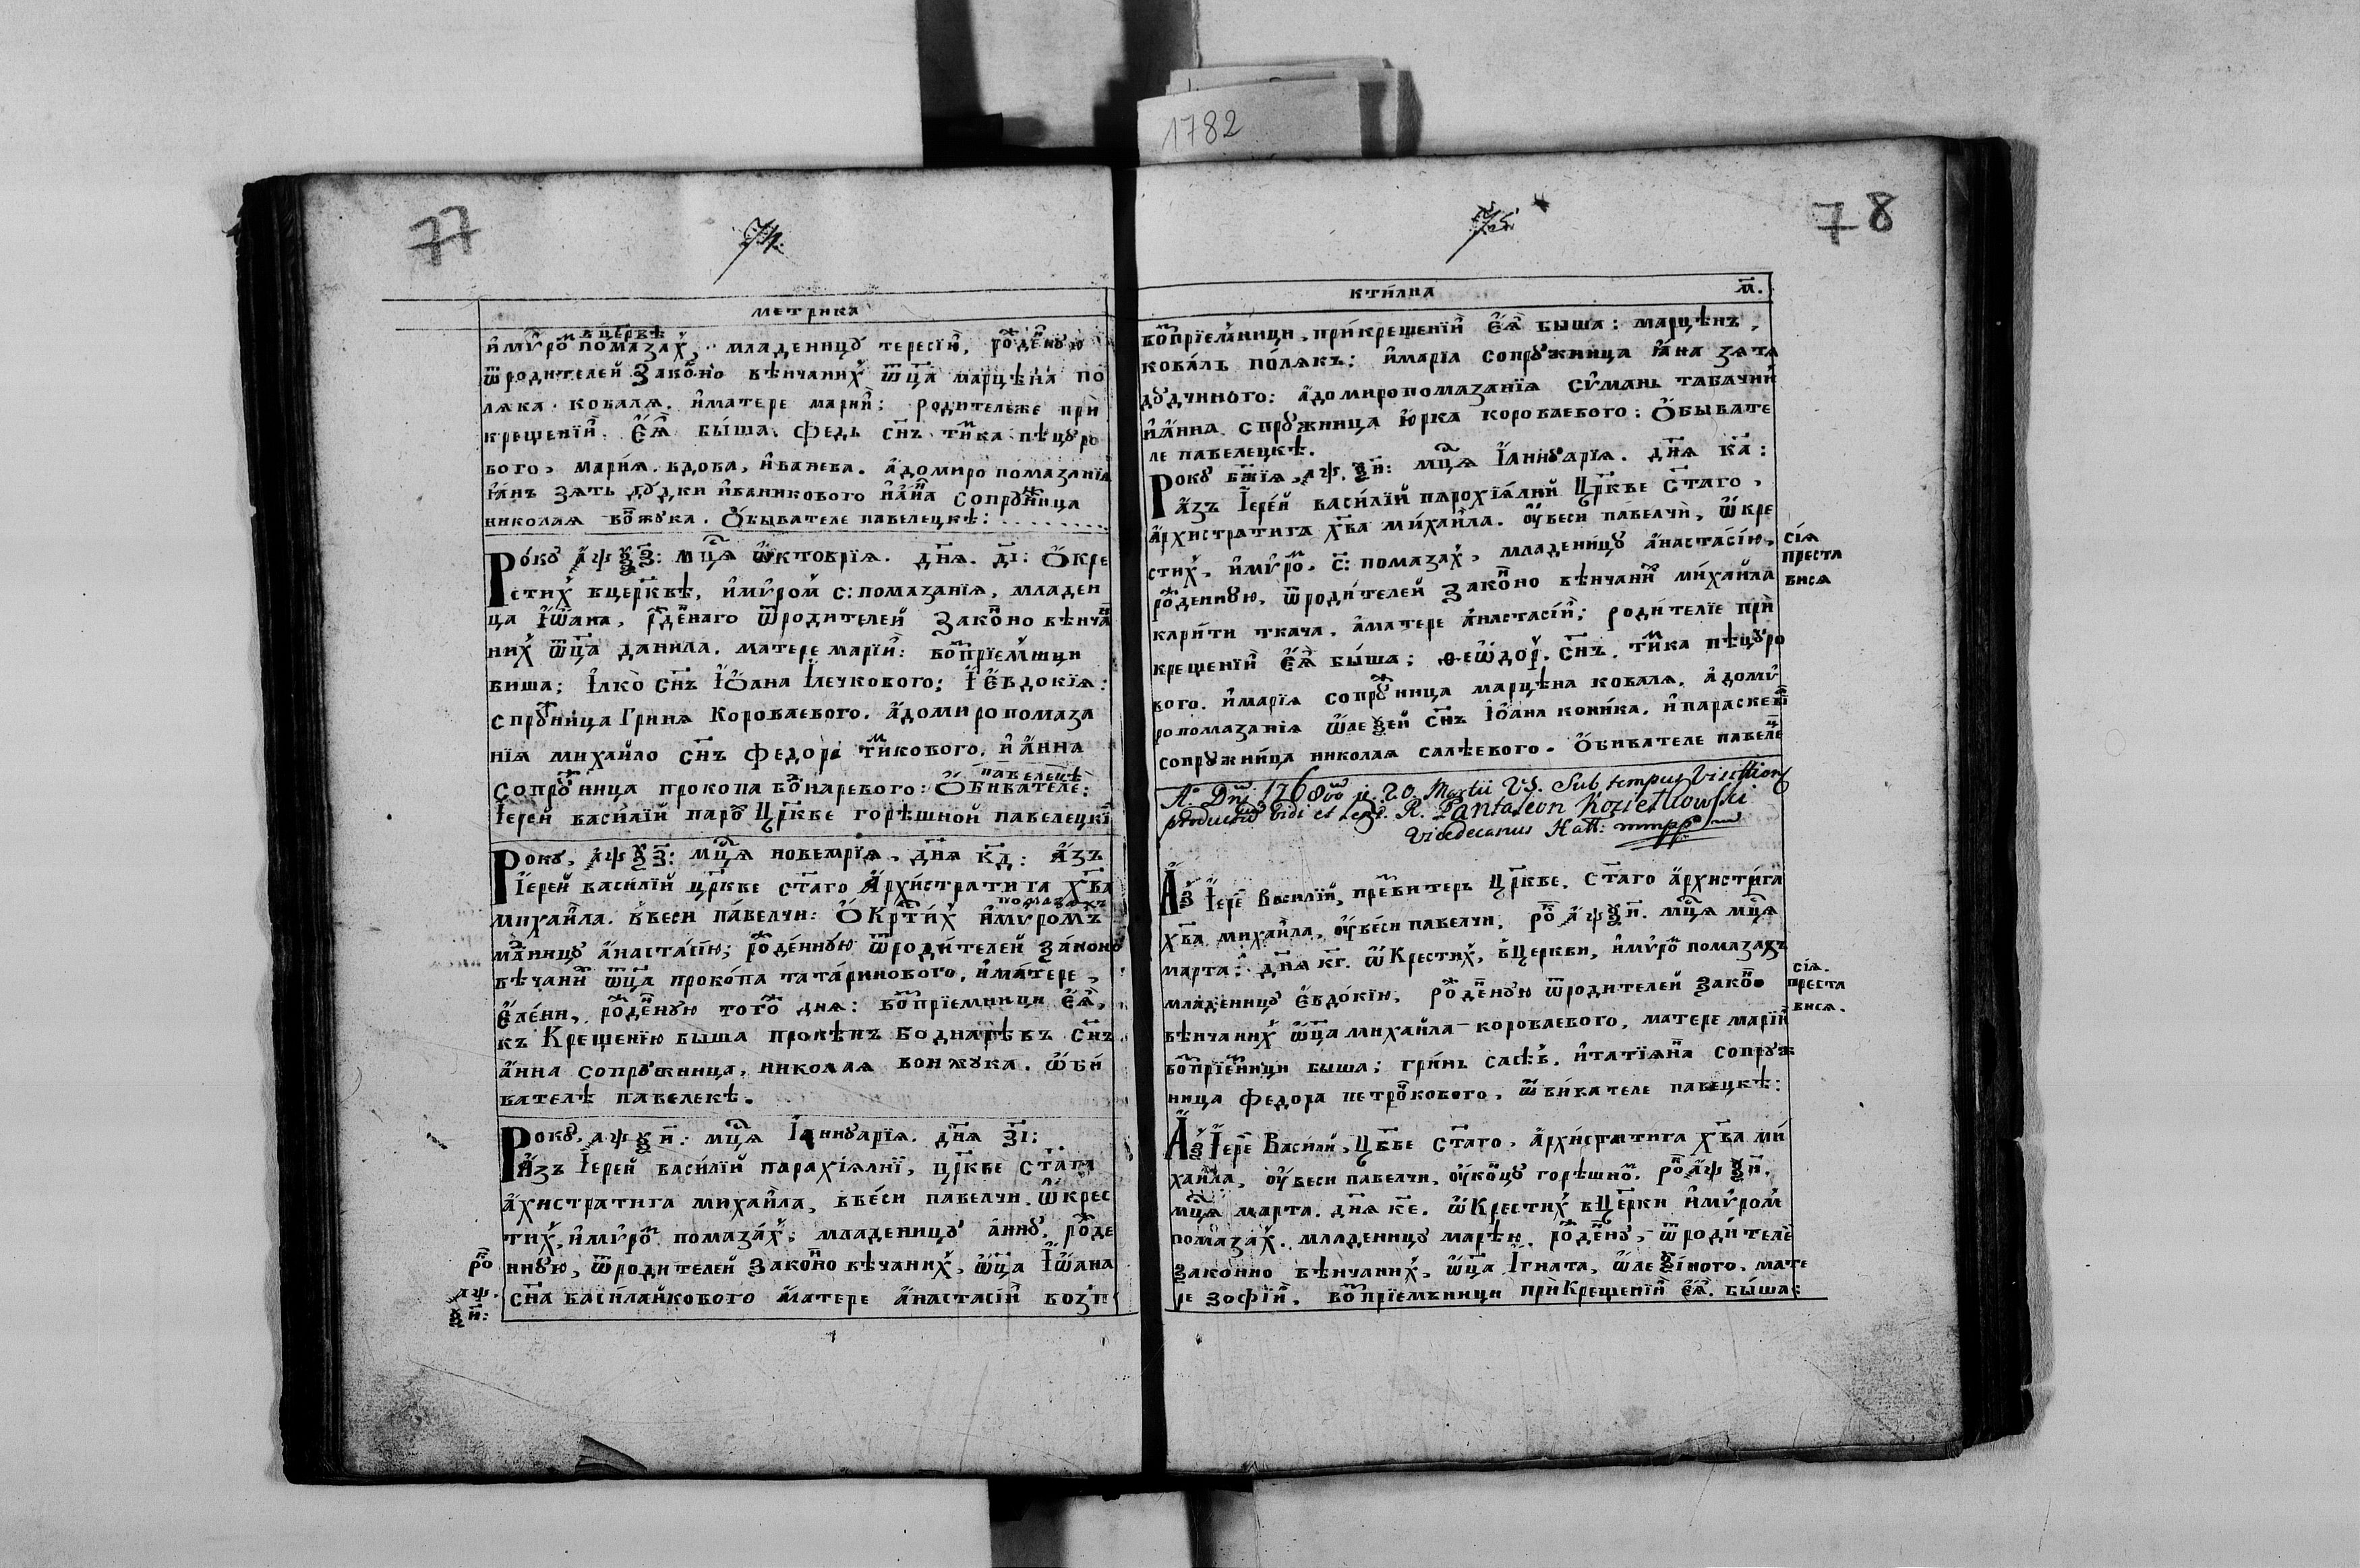 1782
77
74.
метрика
вцерквѣ
и҆мѵ́ро помазах, младеницꙋ тересїю, рожденꙋю
ѿродителей законо вѣнчаних ѿца марцѣна по
лѧка ковалѧ. и҆матере марии: родитележе при
крещенїи. еѧ̀ бы́ша. федь сн҃ъ тимка пѣцꙋро
вого, марїѧ. вдова, и҆ванева. а҆домиропомазанїѧ
ꙗ҆нъ зѧть дꙋдки и҆ваникового и҆анна сопрꙋжница
николаѧ вонжꙋка. О҆бывателе павелецкѣ:
Рокꙋ ҂аѱѯз: мц҃ѧ ѡ҆ктоврїѧ. днѧ. дı: О҆кре
стих вцерквѣ, и҆мѵром с: помазанїѧ, младен
ца І҆ѡана, рожденаго ѿродителей законо вѣнча
них ѿца данила. матере марїи: воспрїемници
биша; І҆лко сн҃ъ І҆ѡана І҆лечкового; І҆ е҆вдокїѧ:
спрꙋжница Гринѧ Короваевого. а҆домиропомаза
нїѧ михайло сн҃ъ федора тимкового. и҆ а҆нна
павелецкѣ
сопрꙋжница прокопа боднаревого: О҆бивателе:
І҆ерей василїй парох Цр҃кве горѣшной павелецкїй
Рокꙋ, ҂аѱѯз: мц҃ѧ новемрїѧ. днѧ кд: а҆зъ
І҆ерей василїй цр҃кве ст҃аго А҆рхистратига Хв҃а
помазахъ
михаила. ввеси павелчи: О҆Крти́х и҆мѵромъ
мл҃нницꙋ а҆настасїю; рожденнꙋю ѿродителей законо
вѣчаних ѿца прокопа татаринового, и҆матере,
е҆лени, рожденꙋю тогож днѧ: воспрїемници еѧ̀,
къ Крещенїю быша прокѣпъ Боднарѣвъ сн҃ъ
а҆нна сопрꙋжница, николаѧ вонжꙋка. ѡ҆би
вателѣ павелекѣ.
Рокꙋ. ҂аѱѯи: мц҃ѧ І҆аннꙋарїѧ. днѧ зı:
А҆зъ І҆ерей василїй парахїѧлнї, цр҃кве ст҃аго
а҆хистратига михаила, ввеси павелчи. ѡ҆крес
тих, и҆мѵром помазах, младеницꙋ аннꙋ, рожде
ннꙋю, ѿродителей законно вѣчаних, ѿца І҆ѡана
сн҃а василайкового матере а҆настасїи возп
ро
҂аѱ.
ѯи:
75
78
ктилна м.
воспрїемници, прикрещенїи еѧ̀ быша: марцѣнъ,
коваль полѧкъ: и҆марїа сопрꙋжница ꙗ҆на зѧтѧ
дꙋдчиного: а҆домиропомазанїѧ сѵмань табачний
и҆анна спрꙋжница ю҆рка короваевого: О҆бывате
ле павелецкѣ.
Рокꙋ бж҃їѧ, ҂аѱ,ѯи: мц҃ѧ І҆аннꙋарїѧ. днѧ ка:
А҆зъ І҆ерей василїй парохїѧлний Цр҃кве ст҃аго,
а҆рхистратига хв҃а михаила. ᲂу҆веси павелчи, ѡ҆кре
стих, и҆мѵром. с: помазах, младеницꙋ а҆настасїю,
рожденнꙋю, ѿродителей законно вѣнчаних михайла
карити ткача. а҆матере а҆настасїи; родителїе при
крещенїи еѧ̀ быша; ѳеѡдор. сн҃ъ. тимка пѣцꙋро
вого. и҆марїѧ сопрꙋжница марцѣна ковалѧ. а҆домѵ
ропомазанїѧ ѡ҆леѯей сн҃ъ І҆ѡана коника. и҆параскевїѧ
сопрꙋжница николаѧ салѣевого. О҆бивателе павеле
сїѧ
преста
висѧ
Aº Dni 1768vo d. 20. Martii V.S. Sub tempus Visittionis
productas vidi et legi. R. Pantaleon Kozietkowski
Vicedecanus Hatt: mmpp
А҆з І҆ере Василїй, превитеръ Цр҃кве. ст҃аго а҆рхистрига
хв҃а михаила, ᲂу҆веси павелчи. рокꙋ ҂аѱѯи. мц҃ѧ мц҃ѧ
марта: днѧ кг. ѡ҆Крестих, вЦеркви, и҆мѵром помазахъ
младеницꙋ е҆вдокїю, рожденꙋю ѿродителей законо
вѣнчаних ѿца михайла короваевого, матере марїи
воспрїемници быша; гринь сасѣв. и҆татїѧна сопрꙋж
ница федора петрокового, ѡ҆бивателе павецкѣ:
сїѧ.
преста
висѧ.
А҆з І҆ере Василй, Цр҃кве ст҃аго. а҆рхистратига хв҃а ми
хаила, ᲂу҆веси павелчи, ᲂу҆концꙋ горѣшном. рокꙋ ҂аѱѯи,
мц҃ѧ марта. днѧ ке. ѡ҆Крестих вЦерки и҆мѵром
помазах. младеницꙋ марѣю. рожденꙋ, ѿродителе
законно вѣнчаних, ѿца І҆гната, ѡ҆леѯїного. мате
ре зофїи. воспрїемъници приКрещенїи еѧ̀. быша: